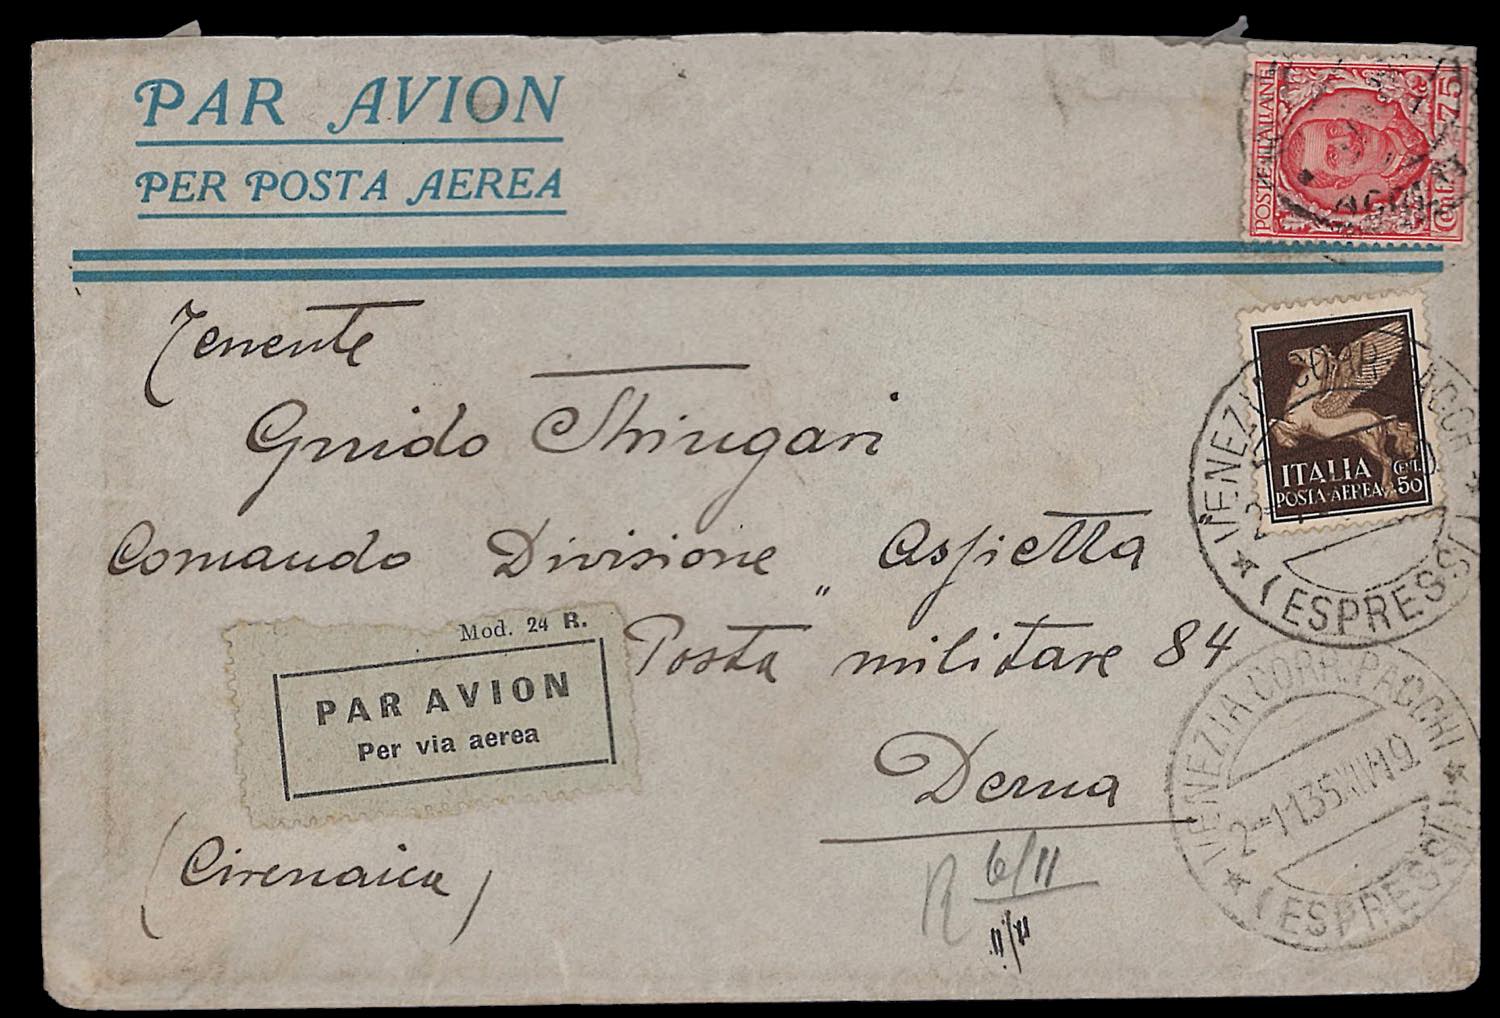 PAR AVION
PER POSTA AEREA
POSTE ITALIANE
75
Tenente
Guido
Comando Divisione "Assietta
ITALIA
POSTA AEREA
CENT. 50
VENEZIA CORR. PACCHI
(ESPRESSI)
Posta militare 84
Derna
(Cirenaica)
Mod. 24 R.
PAR AVION
Per via aerea
VENEZIA CORR. PACCHI
2-11 35 XIV 19
(ESPRESSI)
R 6/11
11/11